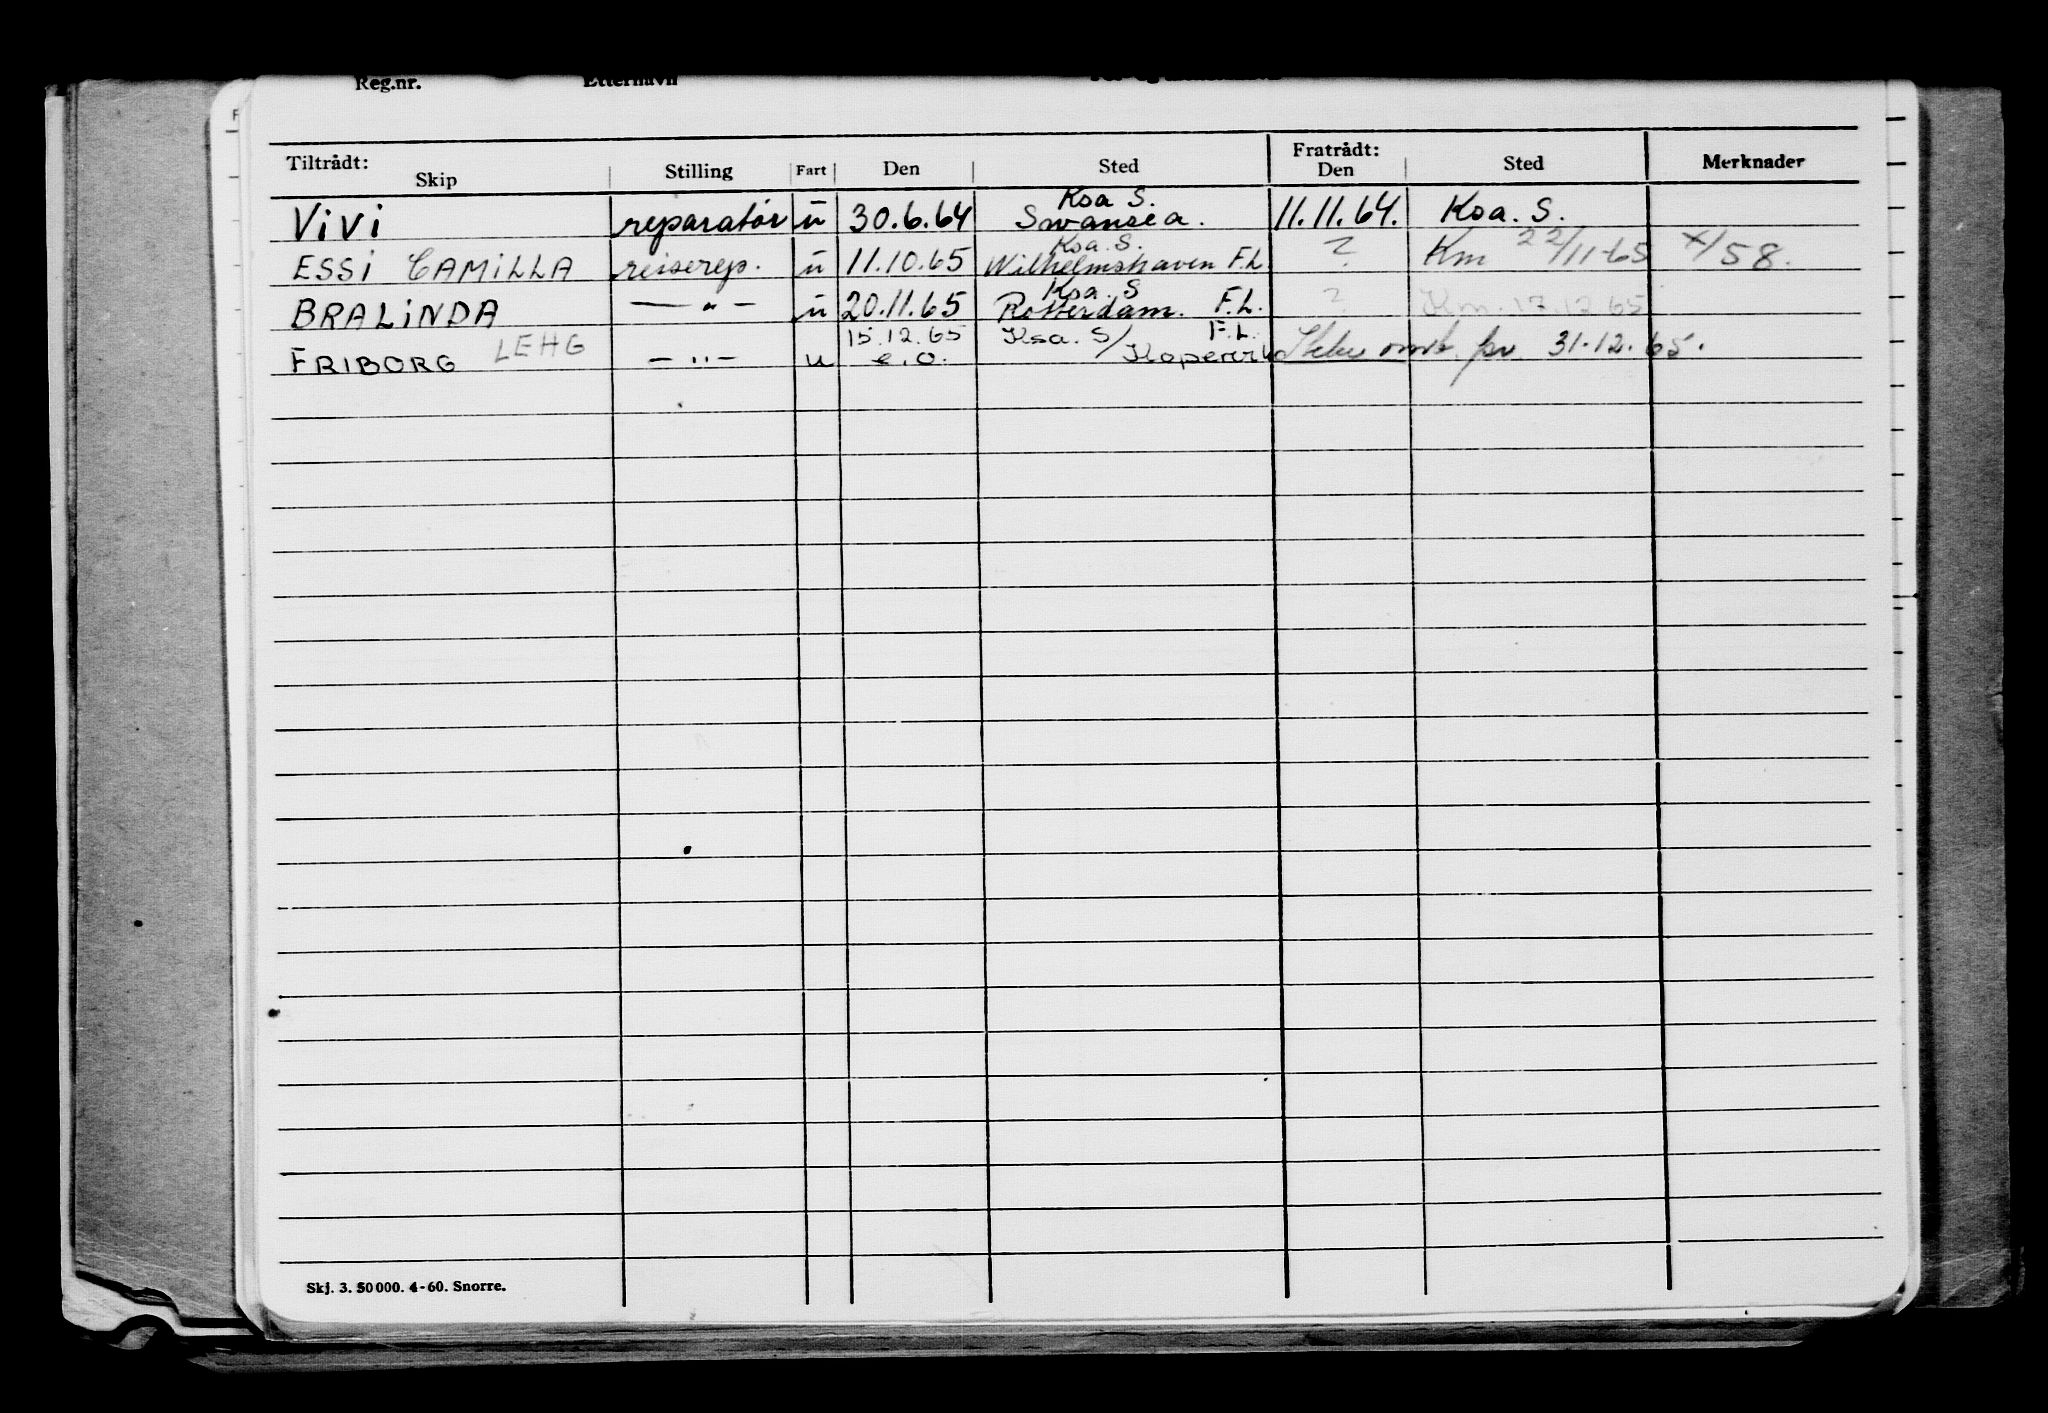 Reg.nr. Etternavn
Tiltrådt: Skip Stilling Fart Den Sted Fratrådt: Den Sted Merknader
ViVi reparatør u 30.6.64 Ksa S. Swansea. 11.11.64. Ksa. S.
ESSI CAMILLA reiserep. u 11.10.65 Ksa. S. Wilhelmshaven F.L. ? Km 22/11-65 x/58.
BRALINDA — " — u 20.11.65 Ksa. S Rotterdam. F.L. ? Km. 17.12.65
FRIBORG LEHG — " — u 15.12.65 e.o. Ksa. S/ Kopervik F.L. 31.12.65.
Skj. 3. 50 000. 4-60. Snorre.